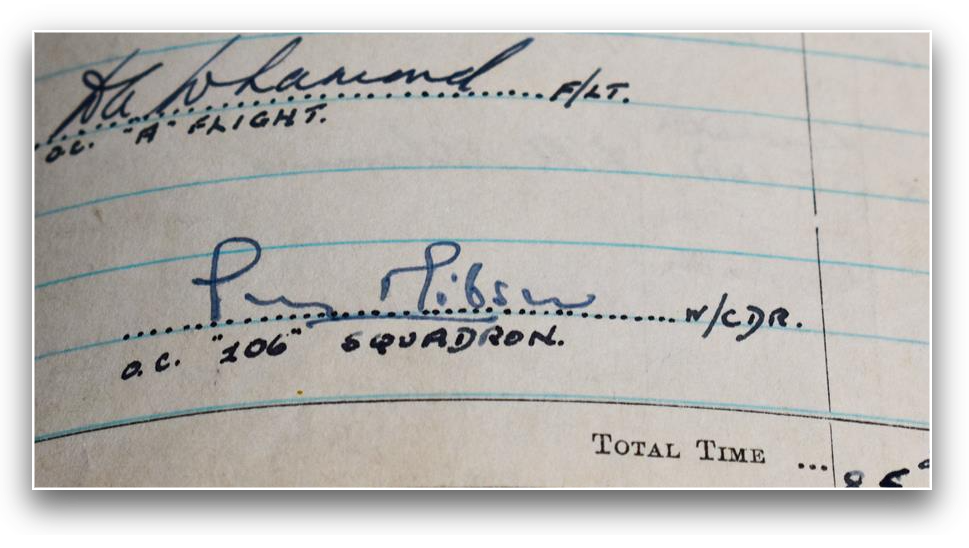 Whamond F/LT.
O.C. "A" FLIGHT.
Gibson W/CDR.
O.C. "106" SQUADRON.
TOTAL TIME ...